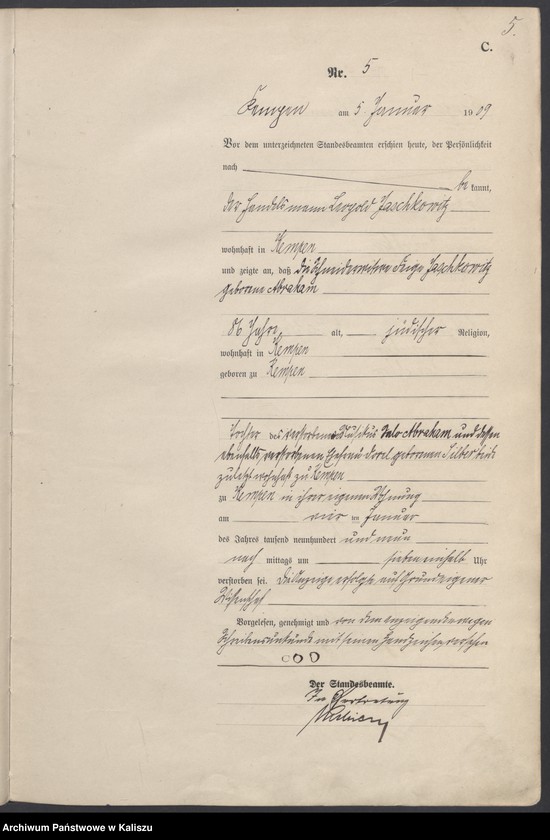 5.
C.
Nr. 5
Kempen am 5. Januar 1909
Vor dem unterzeichneten Standesbeamten erschien heute, der Persönlichkeit
nach
be kannt,
der Handelsmann Leopold Jaschkowitz
wohnhaft in Kempen
und zeigte an, daß die Schneiderwitwe Jaschkowitz
geborene Abraham
86 Jahre alt, jüdischer Religion,
wohnhaft in Kempen
geboren zu Kempen
Tochter des verstorbenen Musikus Abraham und dessen
ebenfalls verstorbenen Ehefrau geborenen
zuletzt wohnhaft zu Kempen
zu Kempen in ihrer eigenen Wohnung
am vier ten Januar
des Jahres tausend neunhundert und neun
nach mittags um sieben einhalb Uhr
verstorben sei. Die Anzeige erfolgte auf Grund eigener
Wissenschaft
Vorgelesen, genehmigt und von dem Anzeigenden wegen
Schreibensunkunde mit seinem Handzeichen versehen
ooo
Der Standesbeamte.
In Vertretung
Archiwum Państwowe w Kaliszu